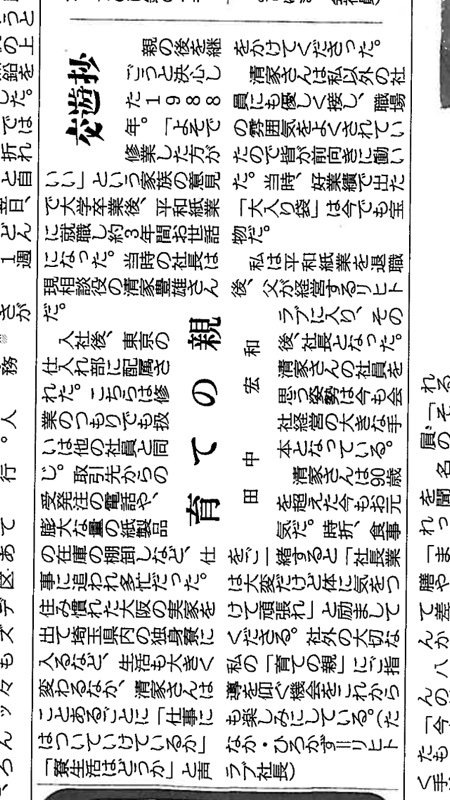 交遊抄
育ての親
田中宏和
親の後を継
ごうと決心し
た1988
年。「よそで
修業した方が
いい」という家族の意見
で大学卒業後、平和紙業
に就職し約3年間お世話
になった。当時の社長は
現相談役の清家豊雄さん
だ。
入社後、東京の
仕入れ部に配属さ
れた。こちらは修
業のつもりでも扱
いは他の社員と同
じ。取引先からの
受発注の電話や、
膨大な量の紙製品
の在庫の棚卸しなど、仕
事に追われ多忙だった。
住み慣れた大阪の実家を
出て埼玉県内の独身寮に
入るなど、生活も大きく
変わるなか、清家さんは
ことあるごとに「仕事に
はついていけているか」
「寮生活はどうか」と声
をかけてくださった。
清家さんは私以外の社
員にも優しく接し、職場
の雰囲気をよくされてい
たので皆が前向きに働い
た。当時、好業績で出た
「大入り袋」は今でも宝
物だ。
私は平和紙業を退職
後、父が経営するリヒト
ラブに入り、その
後、社長となった。
清家さんの社員を
思う姿勢は今も会
社経営の大きな手
本となっている。
清家さんは90歳
を超えた今もお元
気だ。時折、食事
をご一緒すると「社長業
は大変だけど体に気をつ
けて頑張れ」と励まして
くださる。社外の大切な
私の「育ての親」にご指
導を仰ぐ機会をこれから
も楽しみにしている。(た
なか・ひろかず＝リヒト
ラブ社長)